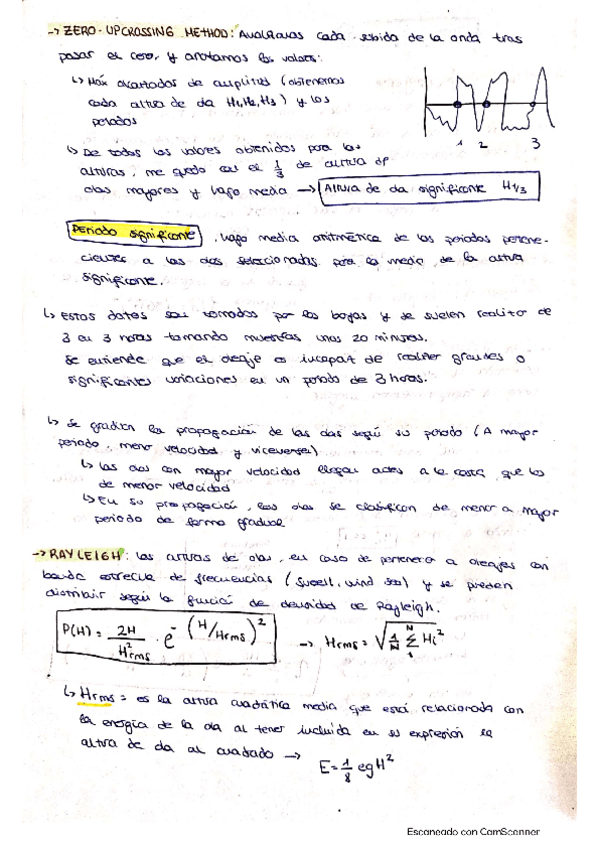 -> ZERO-UPCROSSING METHOD: Analizamos cada subida de la onda tras
pasar el cero, y anotamos los valores:
↳ Más acertados de amplitud (obtenemos
cada altura de ola H1, H2, H3) y los
periodos
1 2 3
↳ De todas los valores obtenidos para las
alturas, me quedo con el 1/3 de altura de
olas mayores y hago media -> Altura de ola significante H1/3
Periodo significante, hago media aritmética de los periodos pertene-
cientes a las olas seleccionadas para la media de la altura
significante.
↳ Estos datos son tomados por las boyas y se suelen realizar de
3 en 3 horas tomando muestras unos 20 minutos.
Se entiende que el oleaje es incapaz de realizar grandes o
significantes variaciones en un periodo de 3 horas.
↳ Se gradúan la propagación de las olas según su periodo (A mayor
periodo, menor velocidad y viceversa)
↳ Las olas con mayor velocidad llegan antes a la costa que las
de menor velocidad
↳ En su propagación, las olas se clasifican de menor a mayor
periodo de forma gradual
-> RAYLEIGH: Las alturas de olas, en caso de pertenecer a oleajes con
banda estrecha de frecuencias (swell, wind sea) y se pueden
distribuir según la función de densidad de Rayleigh.
P(H) = 2H/H²rms · e^-(H/Hrms)² -> Hrms = √(1/N Σ₁ᴺ Hi²)
↳ Hrms = es la altura cuadrática media que está relacionada con
la energía de la ola al tener incluida en su expresión la
altura de ola al cuadrado -> E = 1/8 ρgH²
Escaneado con CamScanner